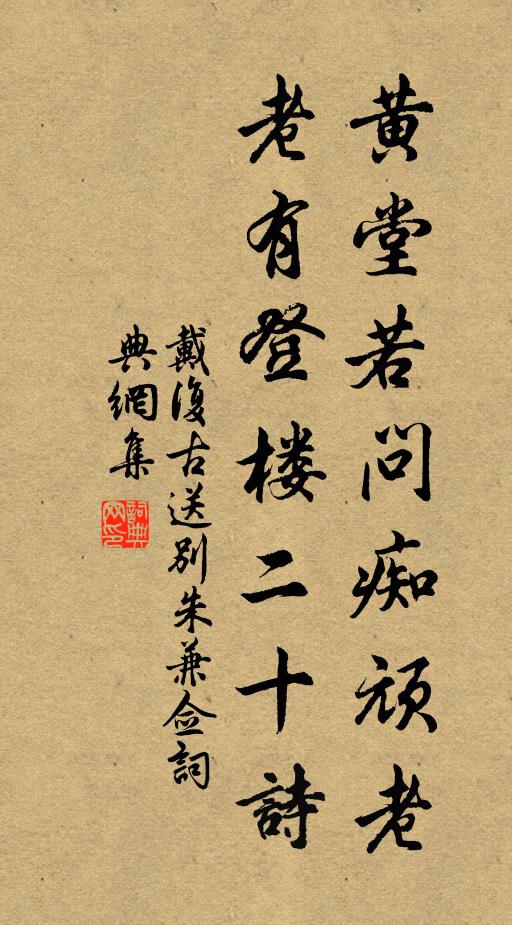 黄堂若问痴顽老
老有登楼二十詩
戴復古送别朱兼佥詞
典網集
詞典
网印